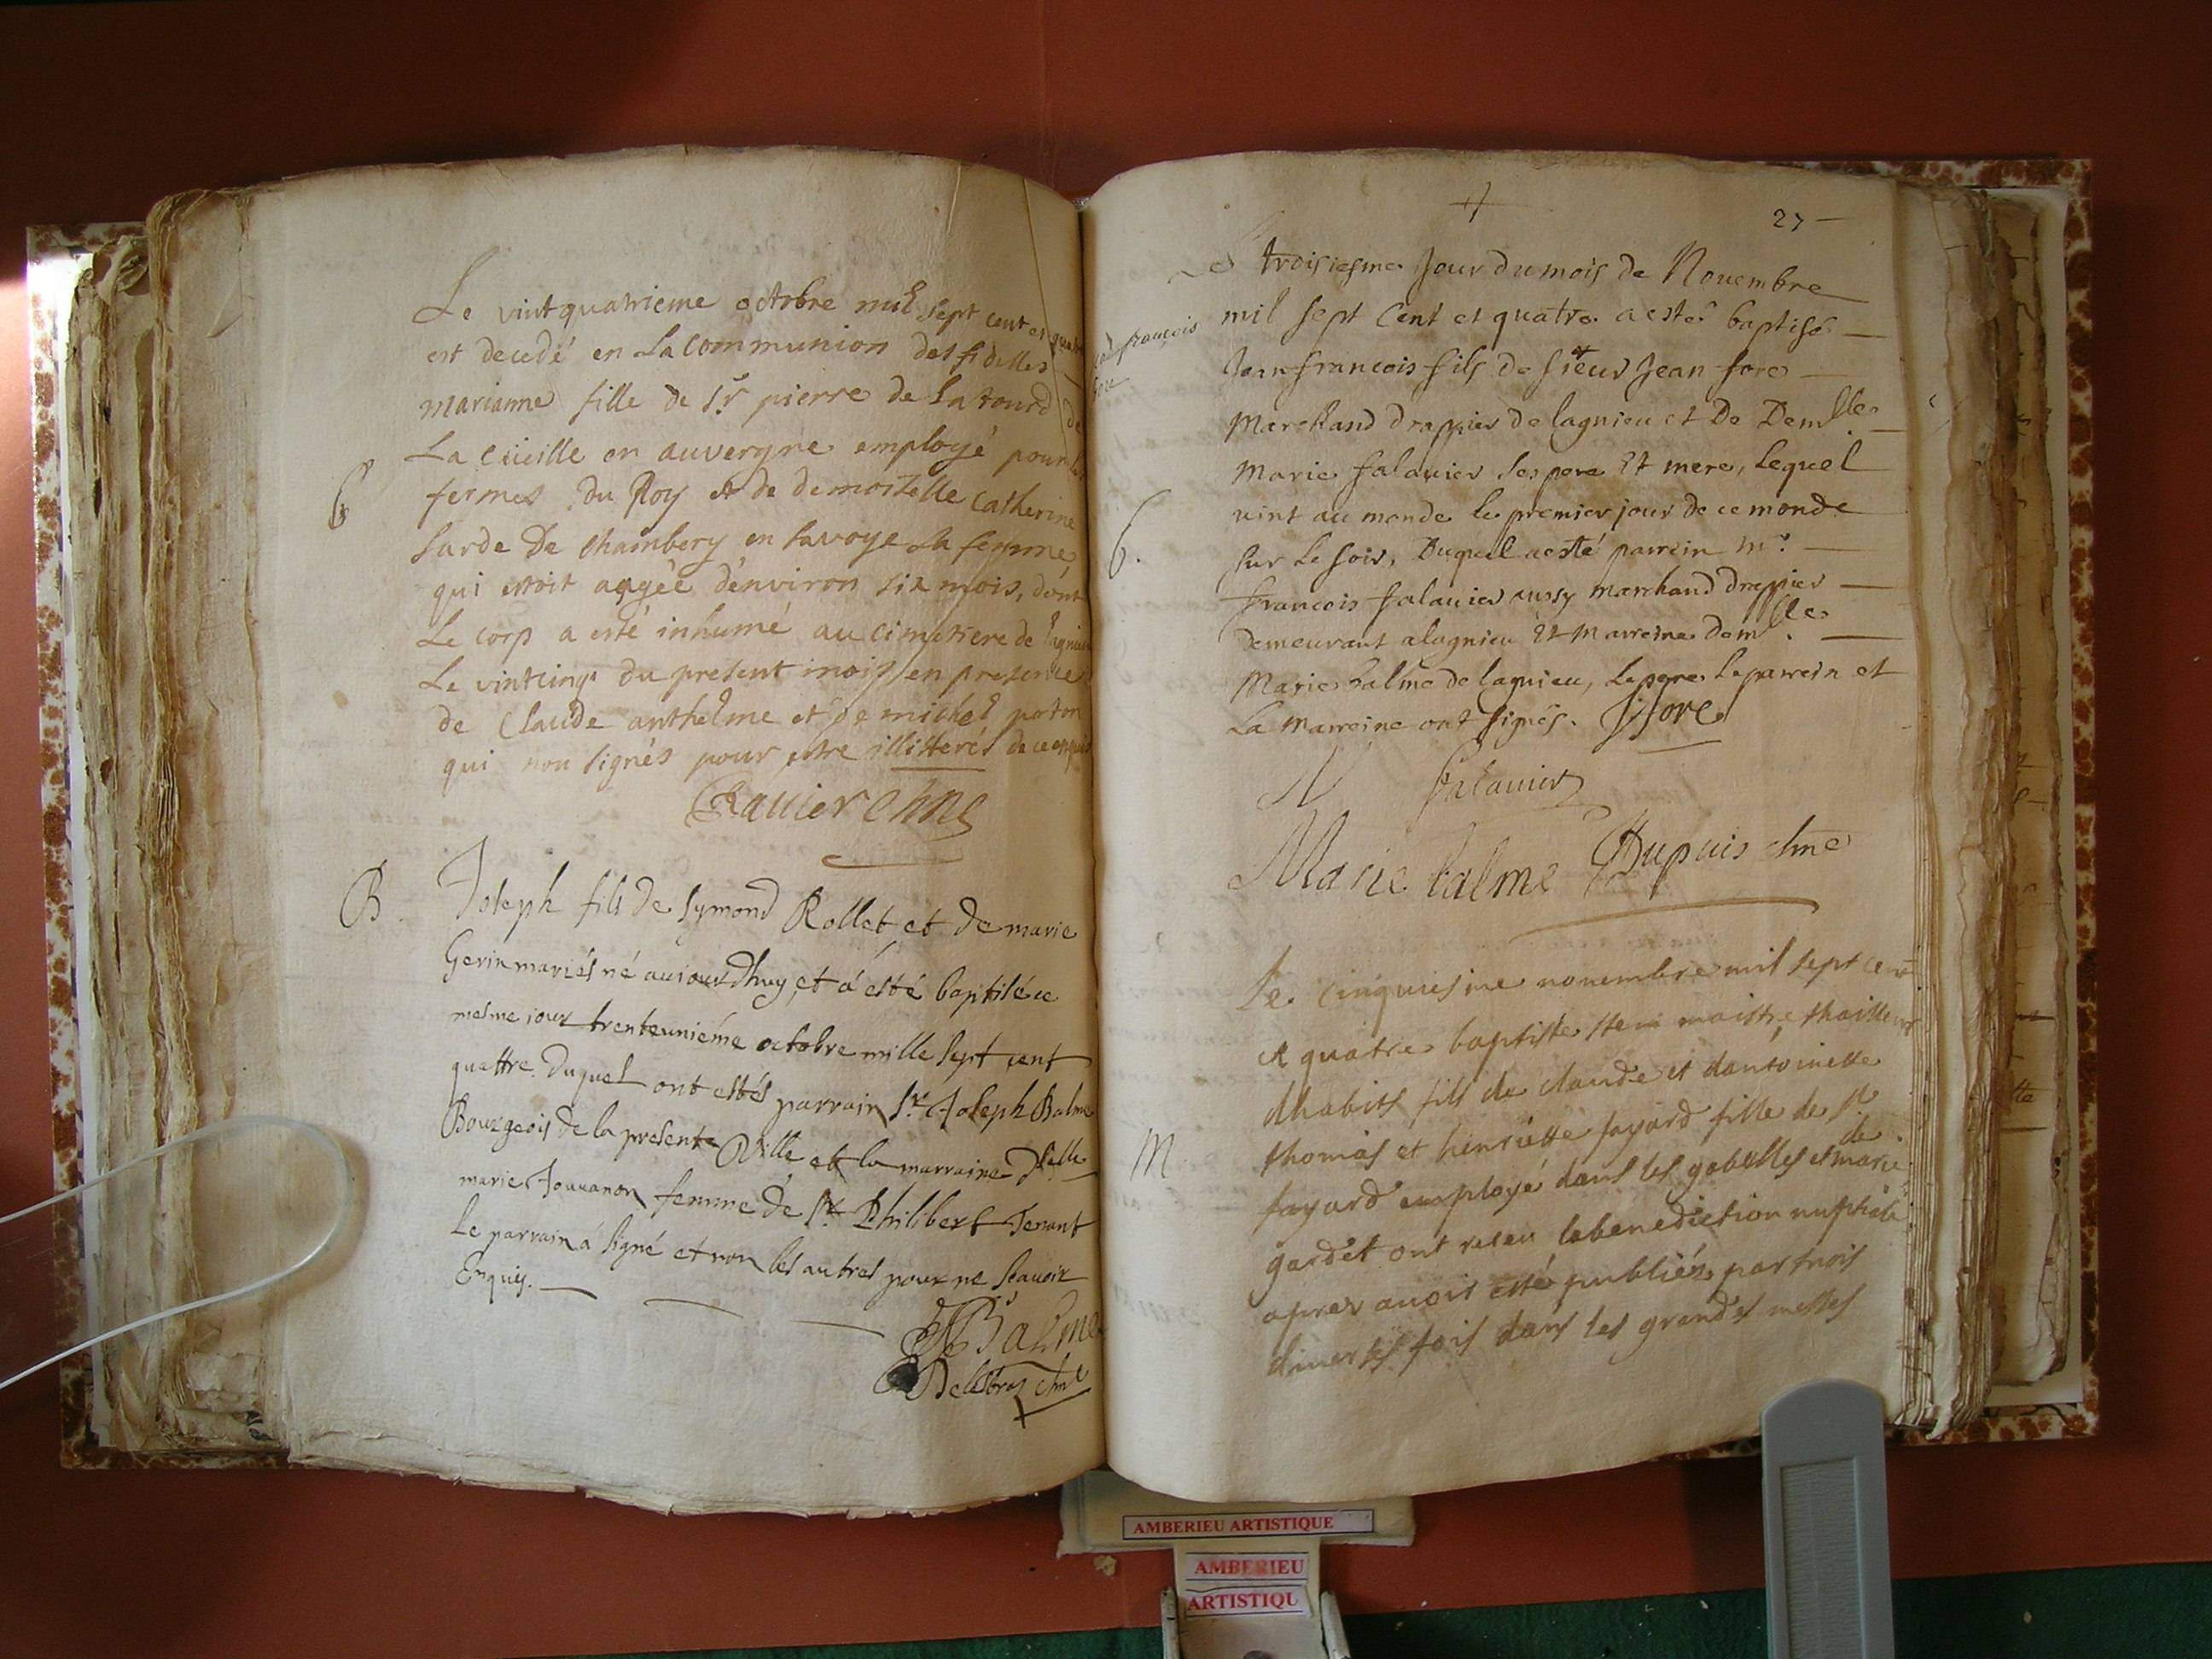 Le vintquatrieme octobre mil sept cent et quatre
est decedé en la communion des fidelles
marianne fille de Sr pierre de la tourd de
La cüeille en auvergne employé pour les
fermes du Roy et de demoiselle catherine
Sarde De chambery en savoye sa femme
qui estoit aagée d'environ six mois, dont
Le corp a esté inhumé au cimetiere de lagnieu
Le vintcinq du present mois en presence
de Claude anthelme et de michel poton
qui non signés pour estre illitterés de ce enquis
Ravier chne
B.
Joseph fils de Symond Rollet et de marie
Gerin mariés né aujourdhuy et á esté baptisé ce
mesme jour trenteuniéme octobre mille sept cent
quattre. duquel ont estés parrain Sr Joseph Balme
Bourgeois de la presente Ville et la marraine dselle
marie Jouuanon femme de Sr Philibert Tenant
Le parrain á signé et non les autres pour ne scauoir
Enquis.
Balme
Delestraz chne
27
troisiesme Jour du mois de Nouembre
mil sept Cent et quatre a esté baptisé
françois
Jean francois fils de sieur Jean fore
Marchand drappier de lagnieu et De Demlle
Marie falauier ses pere Et mere, Lequel
vint au monde le premier jour de ce monde
6.
sur Le soir, Duquel a esté parrein Mr
francois falauier aussy marchand drappier
demeurant a lagnieu Et Marreine demlle
Marie balme de lagnieu, Le pere Le parrein et
La Marreine ont signés. J fore
falauier
Marie balme Dupuis chne
Le cinquiesme nouembre mil sept cent
et quatre baptiste maistre thailleur
dhabits fils de claude et dantoinette
M
thomas et henriette fayard fille de sr
fayard employé dans les gabelles et de marie
gardet ont receu la benediction nuptiale
apres auoir esté publiés par trois
diuerses fois dans les grandes messes
AMBERIEU ARTISTIQUE
AMBERIEU
ARTISTIQU